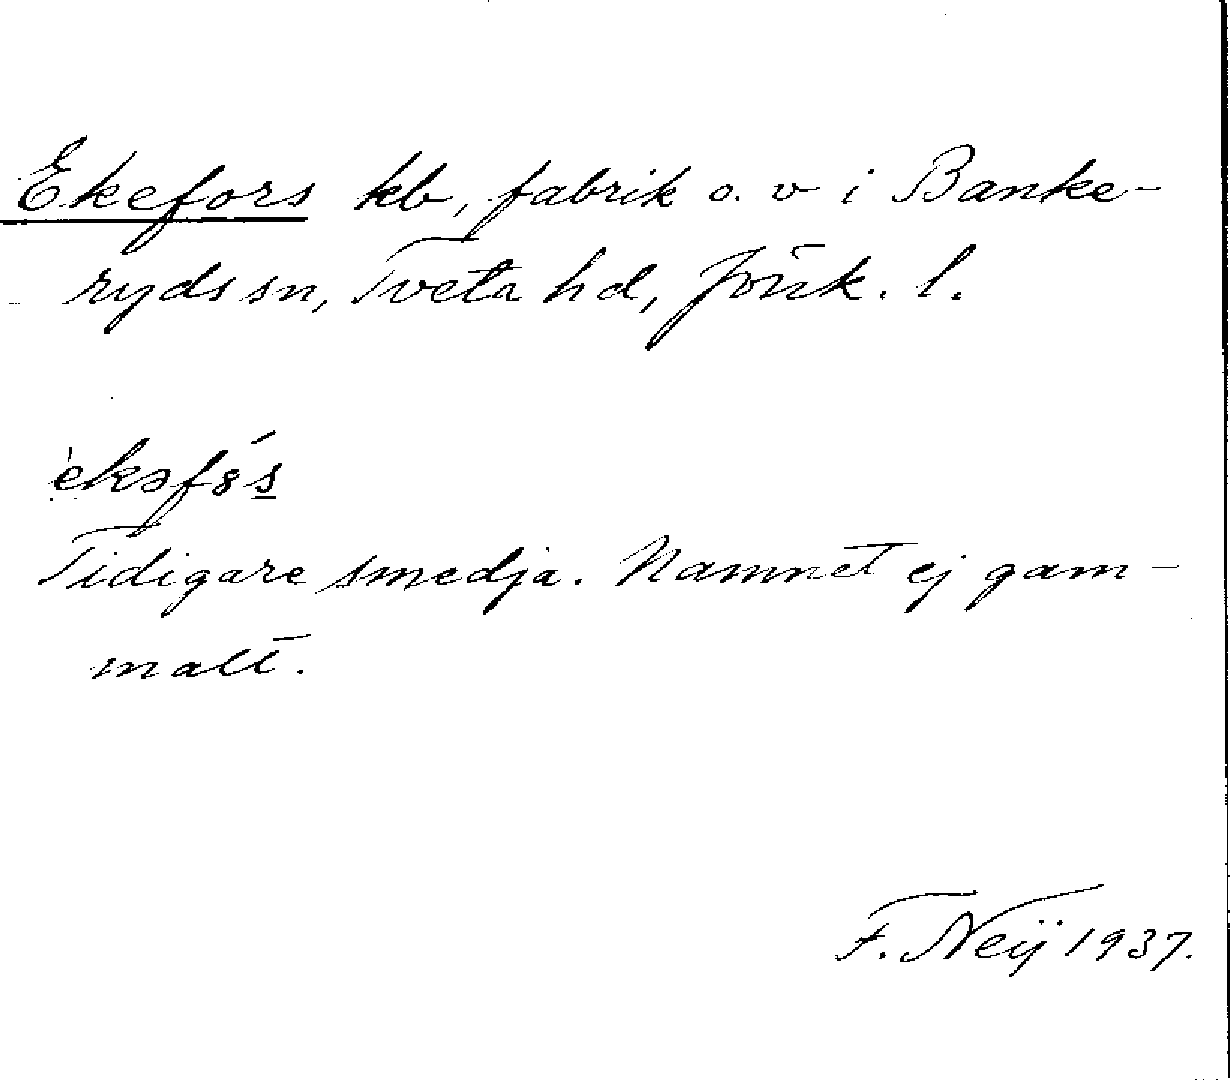 Ekefors kb, fabrik o. v i Banke-
ryds sn, Tveta hd, Jönk. l.
èkəfɷ́s
Tidigare smedja. Namnet ej gam-
malt.
F. Neij 1937.